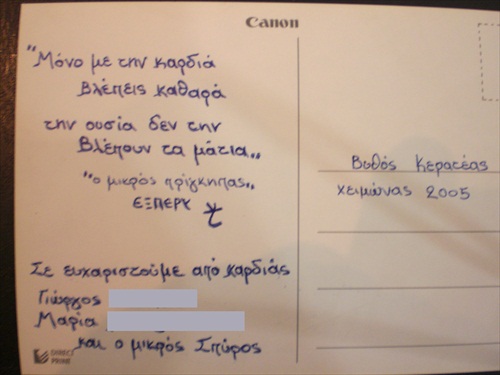 Canon
"Μόνο με την καρδιά
βλέπεις καθαρά
την ουσία δεν την
βλέπουν τα μάτια„
"ο μικρός πρίγκηπας„
ΕΞΠΕΡΥ
Βυθός Κερατέας
χειμώνας 2005
Σε ευχαριστούμε από καρδιάς
Γιώργος
Μαρία
και ο μικρός Σπύρος
DIRECT
PRINT